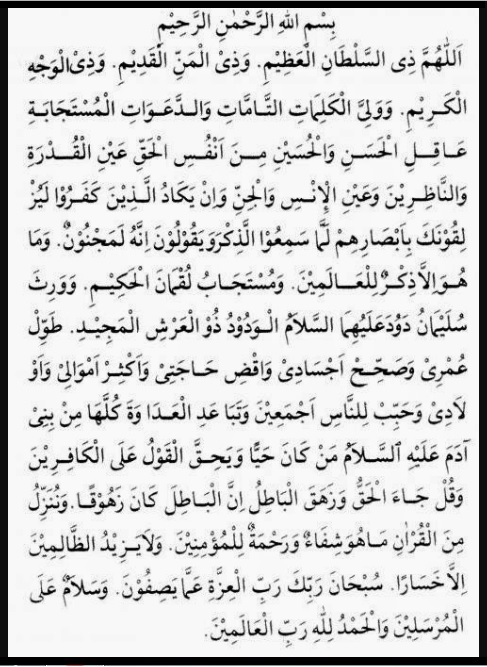 بِسْمِ اللهِ الرَّحْمٰنِ الرَّحِيْمِ
اَللّٰهُمَّ ذِى السُّلْطَانِ الْعَظِيْمِ. وَذِى الْمَنِّ الْقَدِيْمِ. وَذِى الْوَجْهِ
الْكَرِيْمِ. وَوَلِىَّ الْكَلِمَاتِ التَّآمَّاتِ وَالدَّعَوَاتِ الْمُسْتَجَابَةِ
عَاقِلِ الْحَسَنِ وَالْحُسَيْنِ مِنَ اَنْفُسِ الْحَقِّ عَيْنِ الْقُدْرَةِ
وَالنَّاظِرِيْنَ وَعَيْنِ الْإِنْسِ وَالْجِنِّ وَاِنْ يَكَادُ الَّذِيْنَ كَفَرُوْا لَيُزْ
لِقُوْنَكَ بِاَبْصَارِهِمْ لَمَّا سَمِعُوْا الذِّكْرَ وَيَقُوْلُوْنَ اِنَّهُ لَمَجْنُوْنٌ. وَمَا
هُوَ اِلَّا ذِكْرٌ لِلْعَالَمِيْنَ. وَمُسْتَجَابُ لُقْمَانَ الْحَكِيْمِ. وَوَرِثَ
سُلَيْمَانُ دَوُدَ عَلَيْهِمَا السَّلَامُ الْوَدُوْدُ ذُو الْعَرْشِ الْمَجِيْدِ. طَوِّلْ
عُمْرِىْ وَصَحِّحْ اَجْسَادِىْ وَاقْضِ حَاجَتِىْ وَاَكْثِرْ اَمْوَالِىْ وَاَوْ
لَادِىْ وَحَبِّبْ لِلنَّاسِ اَجْمَعِيْنَ وَتَبَا عَدِ الْعَدَا وَةَ كُلَّهَا مِنْ بَنِىْ
آدَمَ عَلَيْهِ السَّلَامُ مَنْ كَانَ حَيًّا وَيَحِقَّ الْقَوْلُ عَلَى الْكَافِرِيْنَ
وَقُلْ جَاءَ الْحَقُّ وَزَهَقَ الْبَاطِلُ اِنَّ الْبَاطِلَ كَانَ زَهُوْقًا. وَنُنَزِّلُ
مِنَ الْقُرْاٰنِ مَا هُوَ شِفَاءٌ وَرَحْمَةٌ لِلْمُؤْمِنِيْنَ. وَلَا يَزِيْدُ الظَّالِمِيْنَ
اِلَّا خَسَارًا. سُبْحَانَ رَبِّكَ رَبِّ الْعِزَّةِ عَمَّا يَصِفُوْنَ. وَسَلَامٌ عَلَى
الْمُرْسَلِيْنَ وَالْحَمْدُ لِلّٰهِ رَبِّ الْعَالَمِيْنَ.